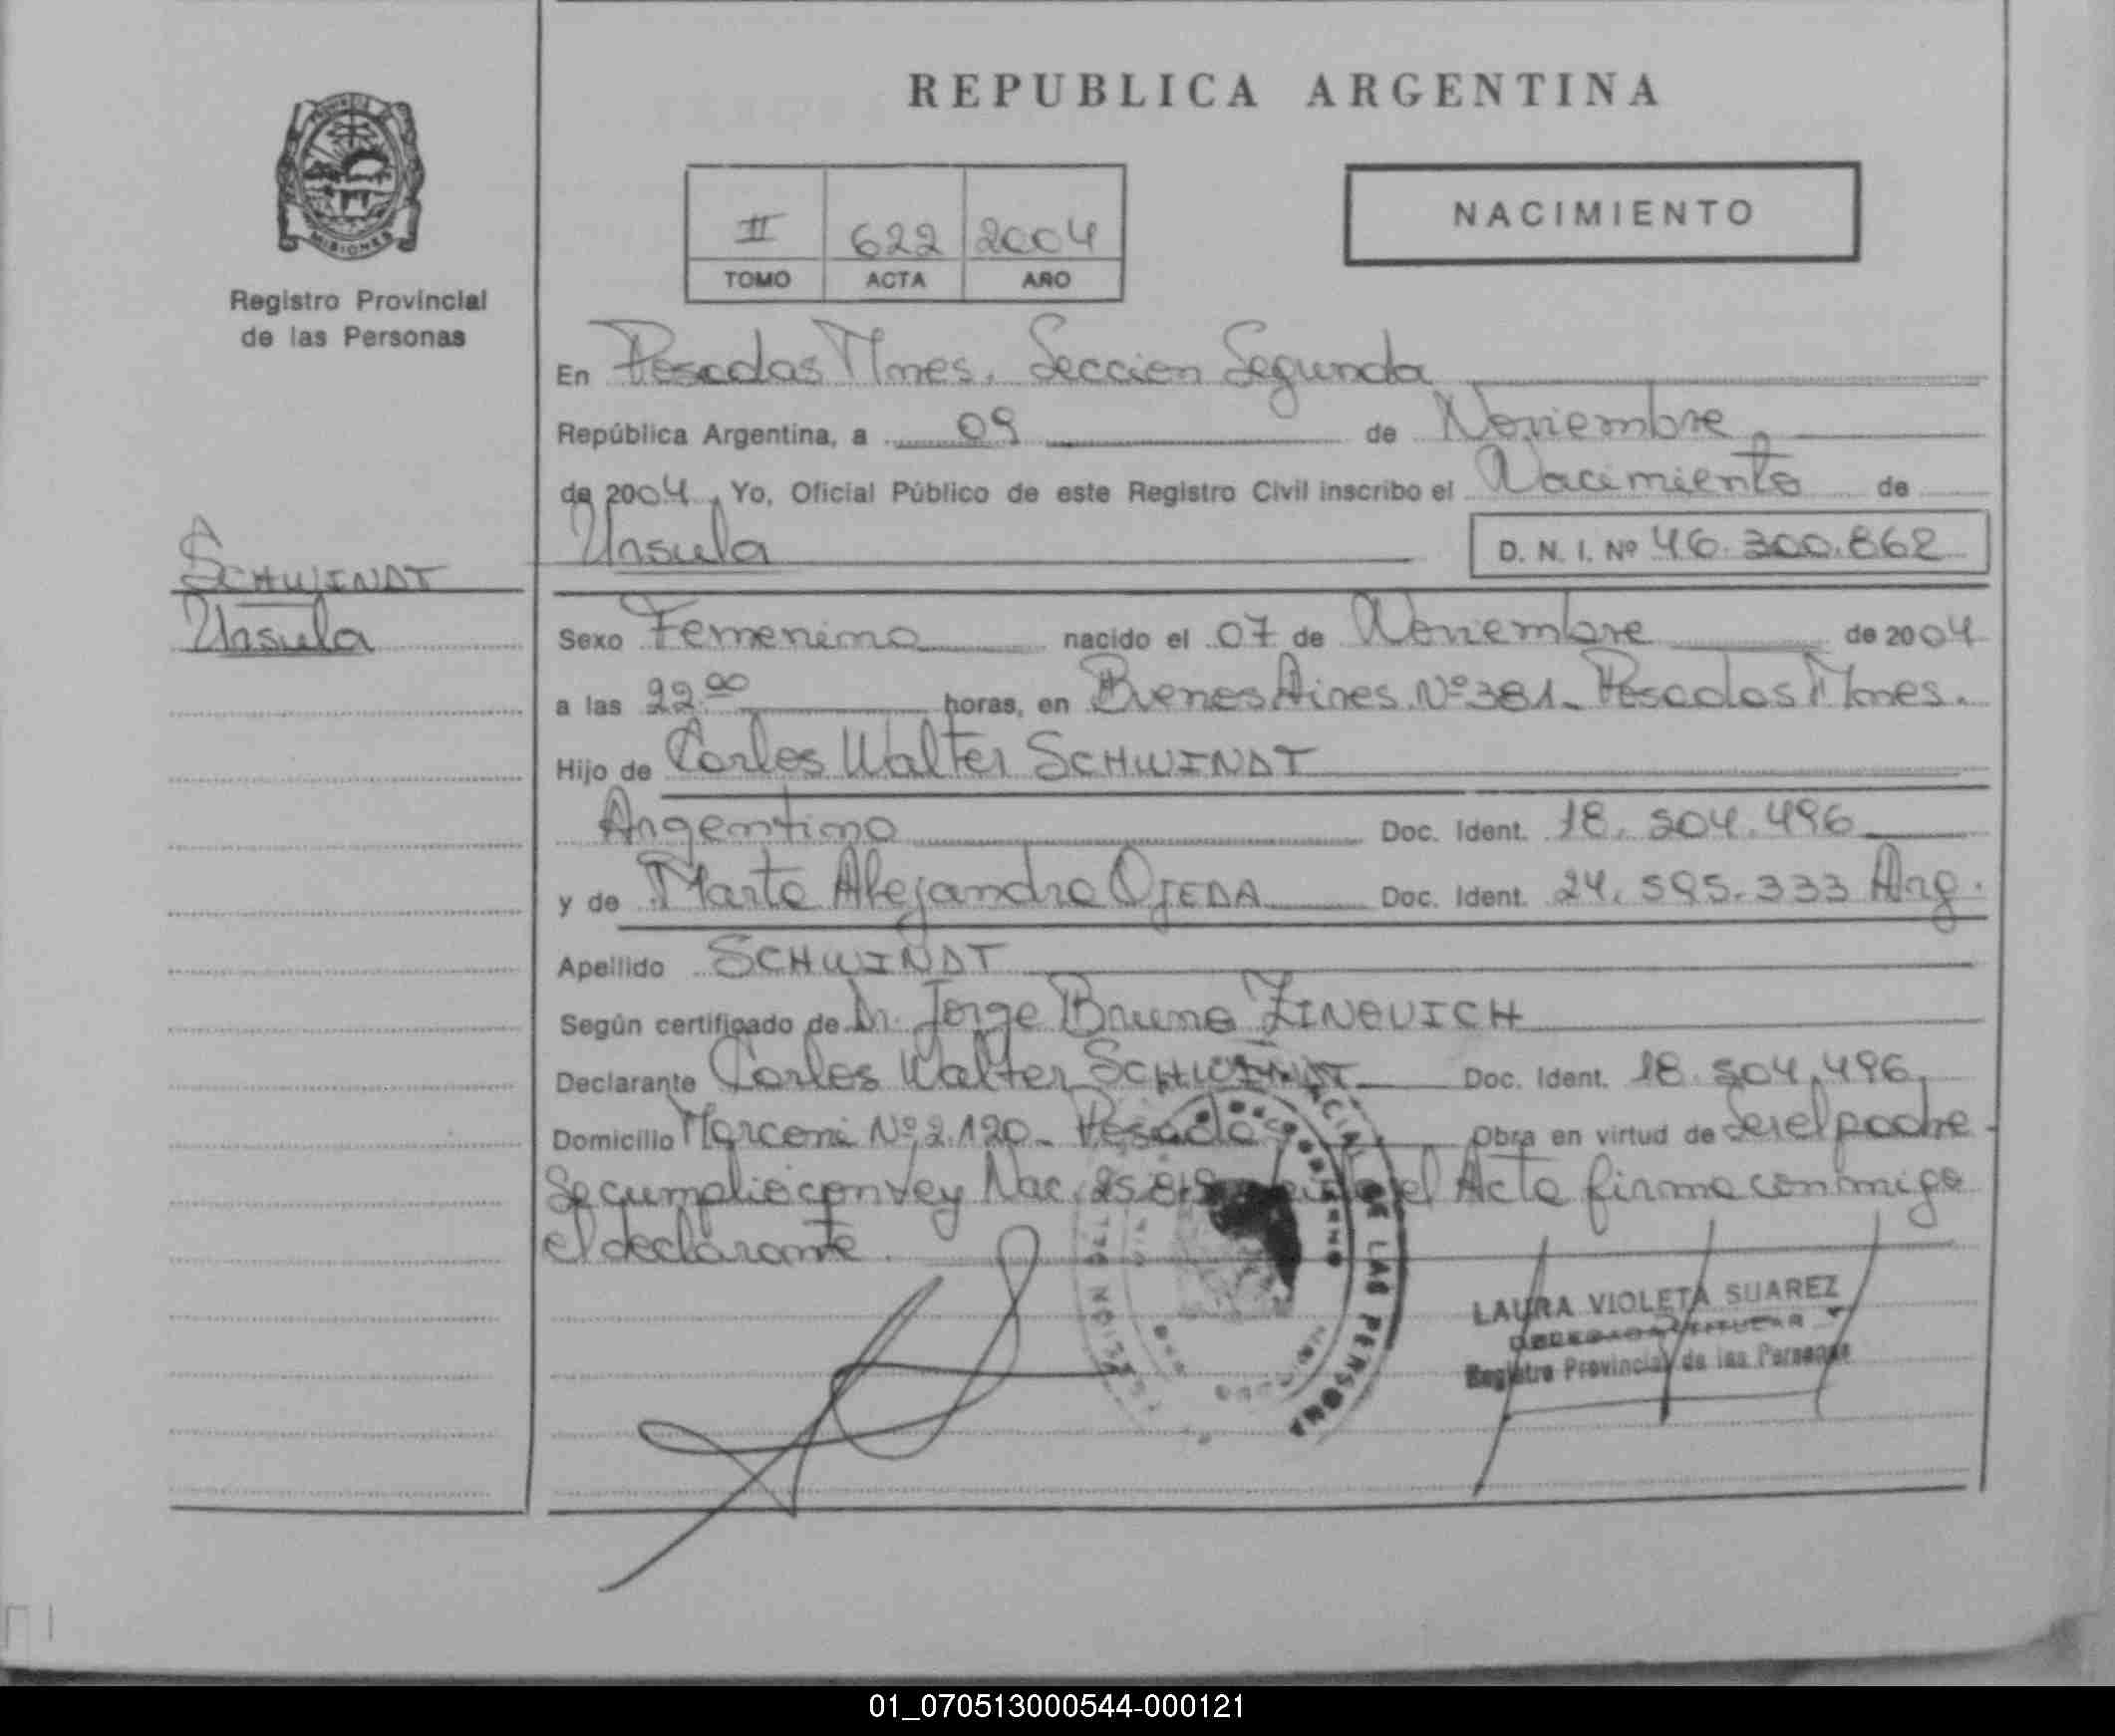 REPUBLICA ARGENTINA
MISIONES
Registro Provincial
de las Personas
II 622 2004
TOMO ACTA AÑO
NACIMIENTO
En Posadas Mnes. Seccion Segunda
República Argentina, a 09 de Noviembre
de 2004, Yo, Oficial Público de este Registro Civil inscribo el Nacimiento de
Ursula D. N. I. Nº 46.300.862
SCHWINDT
Ursula
Sexo Femenino nacido el 07 de Noviembre de 2004
a las 22 00 horas, en Buenos Aires Nº 381- Posadas Mnes.
Hijo de Carlos Walter SCHWINDT
Argentino Doc. Ident. 18.504.496
y de Marta Alejandra OJEDA Doc. Ident. 24.595.333 Arg.
Apellido SCHWINDT
Según certificado de Dr. Jorge Bruno ZINOVICH
Declarante Carlos Walter SCHWINDT Doc. Ident. 18.504.496
Domicilio Marconi Nº 2.120- Posadas Obra en virtud de ser el padre
Se cumplio con Ley Nac. el Acta firma conmigo
el declarante.
DE LAS PERSONAS
LAURA VIOLETA SUAREZ
Registro Provincial de las Personas
01_070513000544-000121